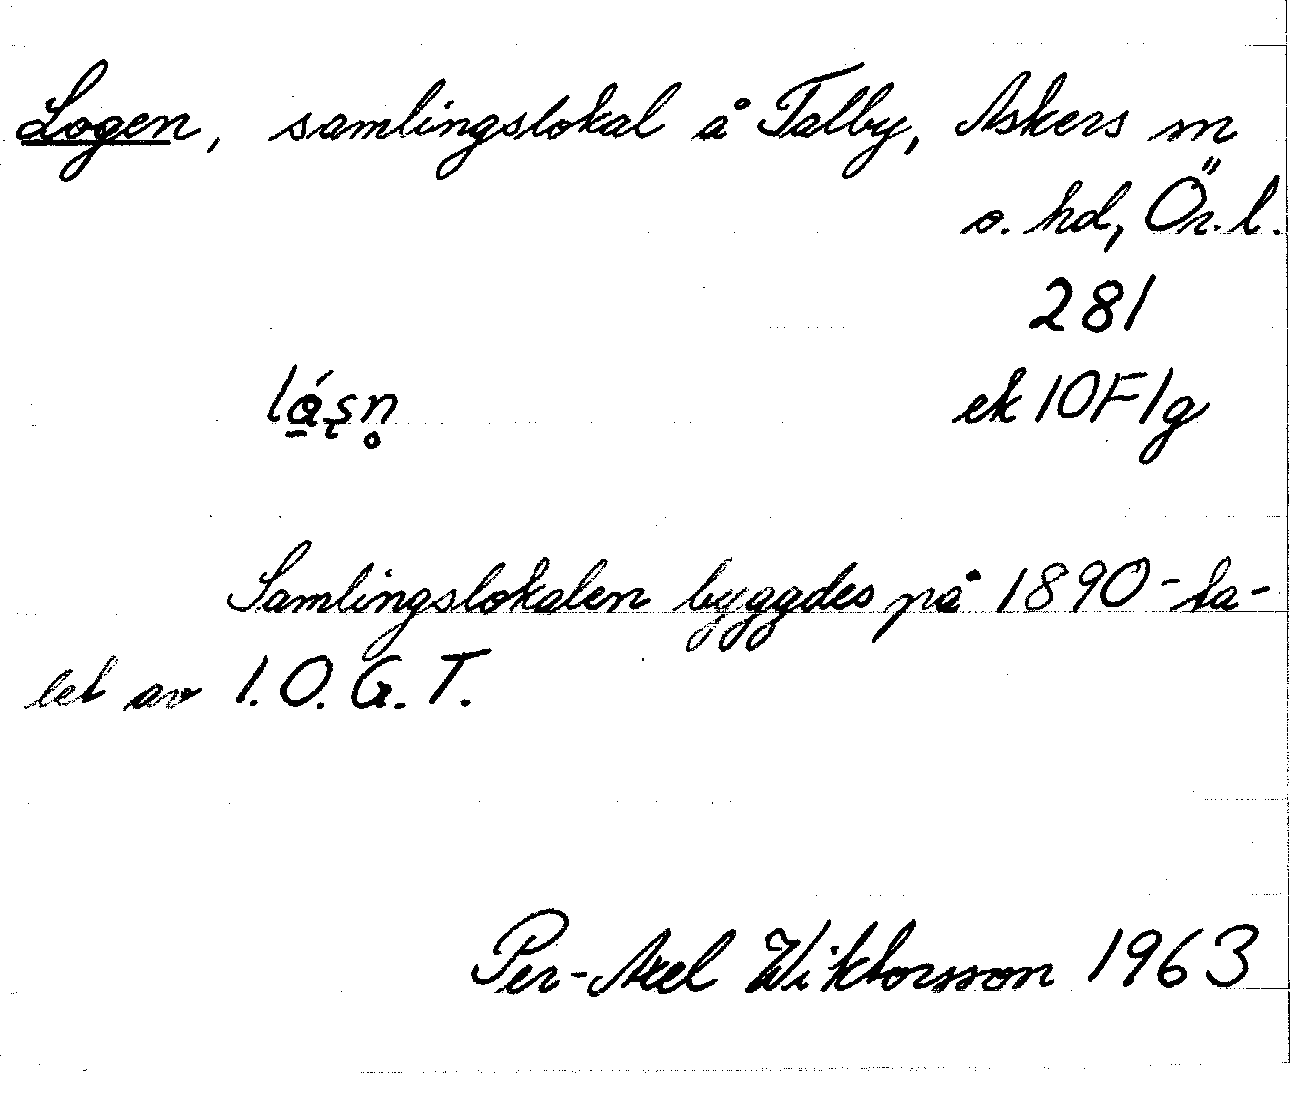 Logen, samlingslokal å Talby, Askers sn
o. hd, Ör. l.
281
ek 10F1g
Samlingslokalen byggdes på 1890-ta-
let av I.O.G.T.
Per-Axel Wiktorsson 1963